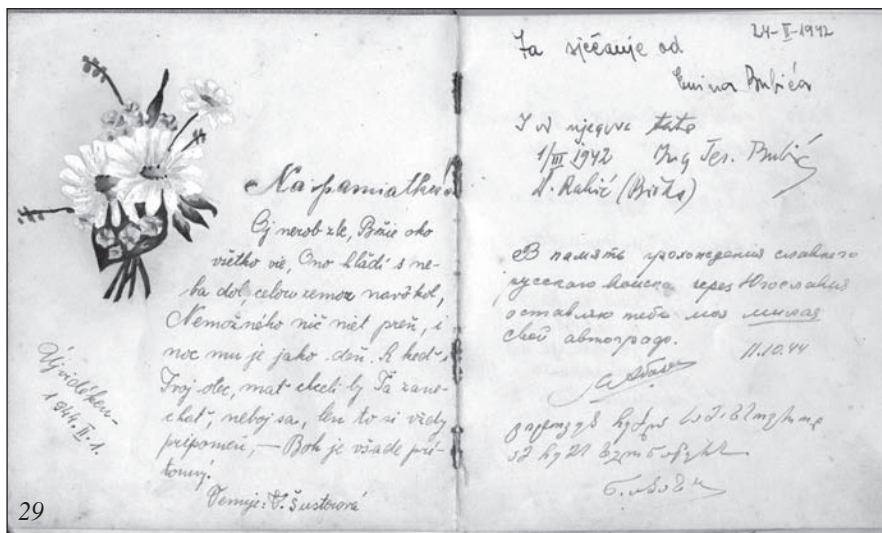 Na pamiatku!
Oj nerob zle, Božie oko
všetko vie, Ono hľadí s ne-
ba dol, celou zemou navôkol,
Nemožného nič niet preň, i
noc mu je jako deň. A keď i
Tvoj otec, mať chceli by Ťa zane-
chať, neboj sa, len to si vždy
pripomeň, — Boh je všade prí-
tomný!
Venuje: V. Šusterová
Újvidéken
1944. II. 1.
29
24-II-1942
Za sjećanje od
Emina Bubića
I od njegova tate
1/III 1942 Ing Fer. Bubić
D. Rahić (Brčko)
В память прохождения славного
русского войска через Югославия
оставляю тебе моя милая
свой автограф.
11.10.44